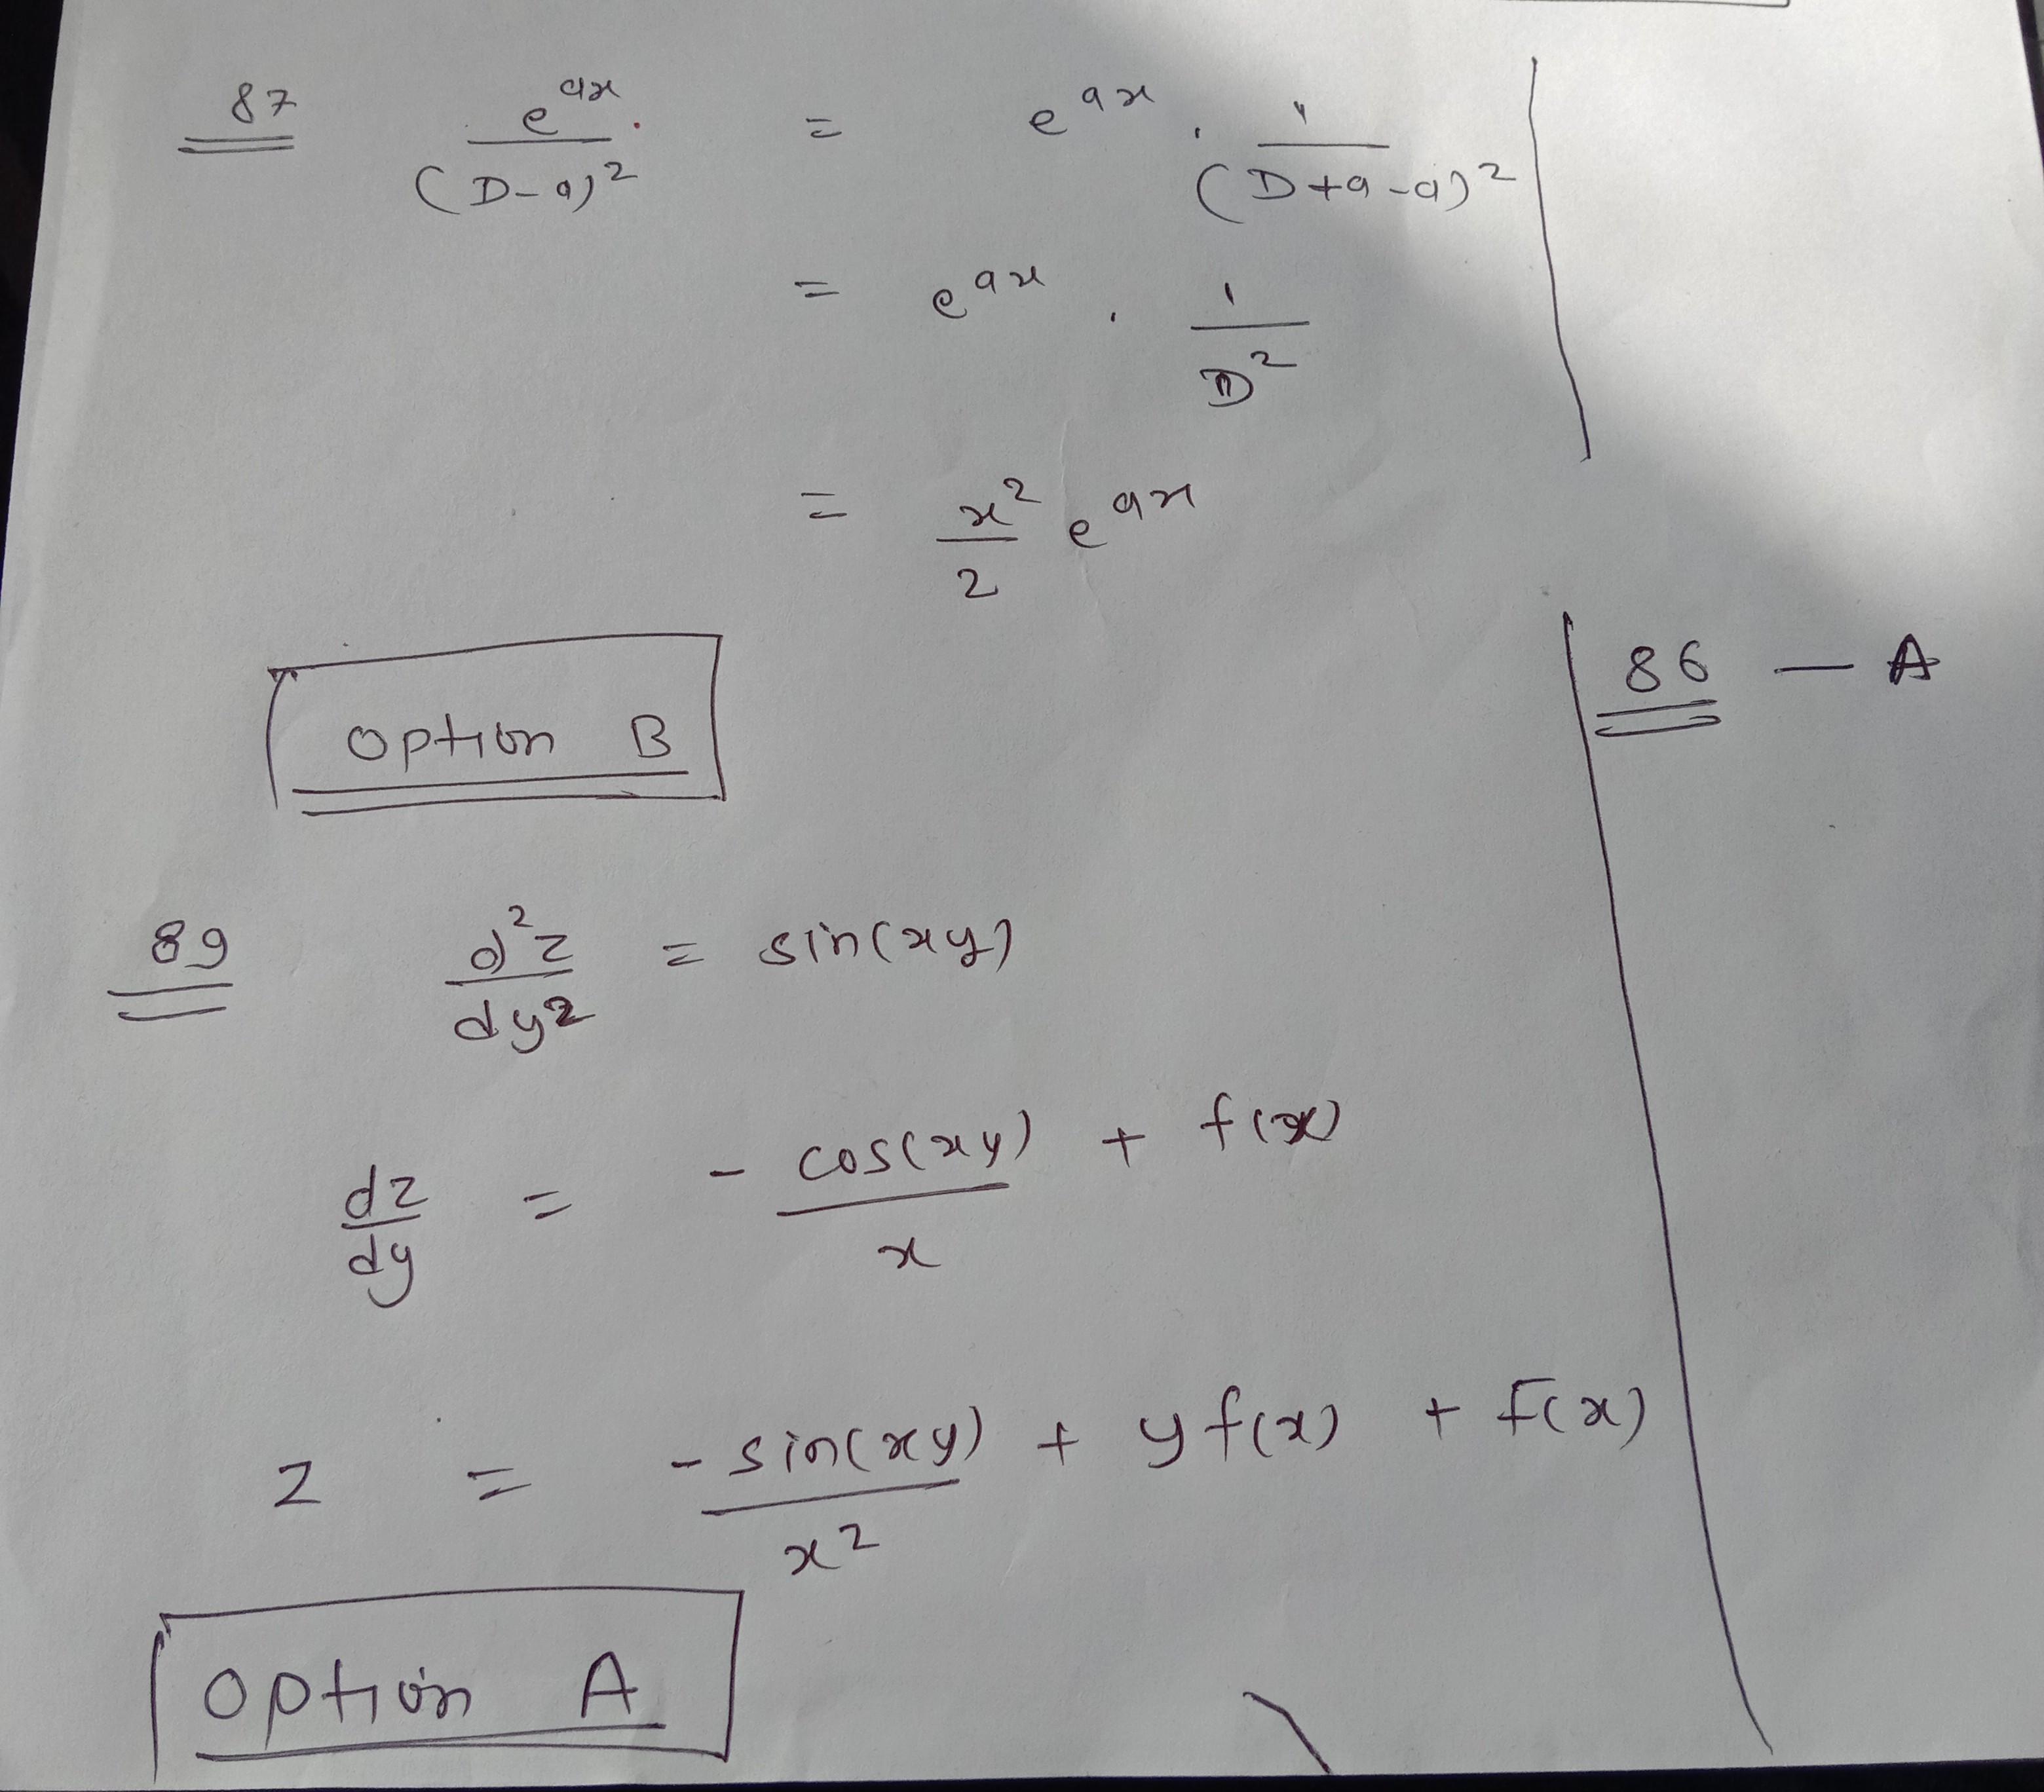 87 e^{ax}/(D-a)² = e^{ax} . 1/(D+a-a)²
= e^{ax} . 1/D²
= x²/2 e^{ax}
option B
86 — A
89 d²z/dy² = sin(xy)
dz/dy = - cos(xy)/x + f(x)
z = - sin(xy)/x² + y f(x) + F(x)
option A